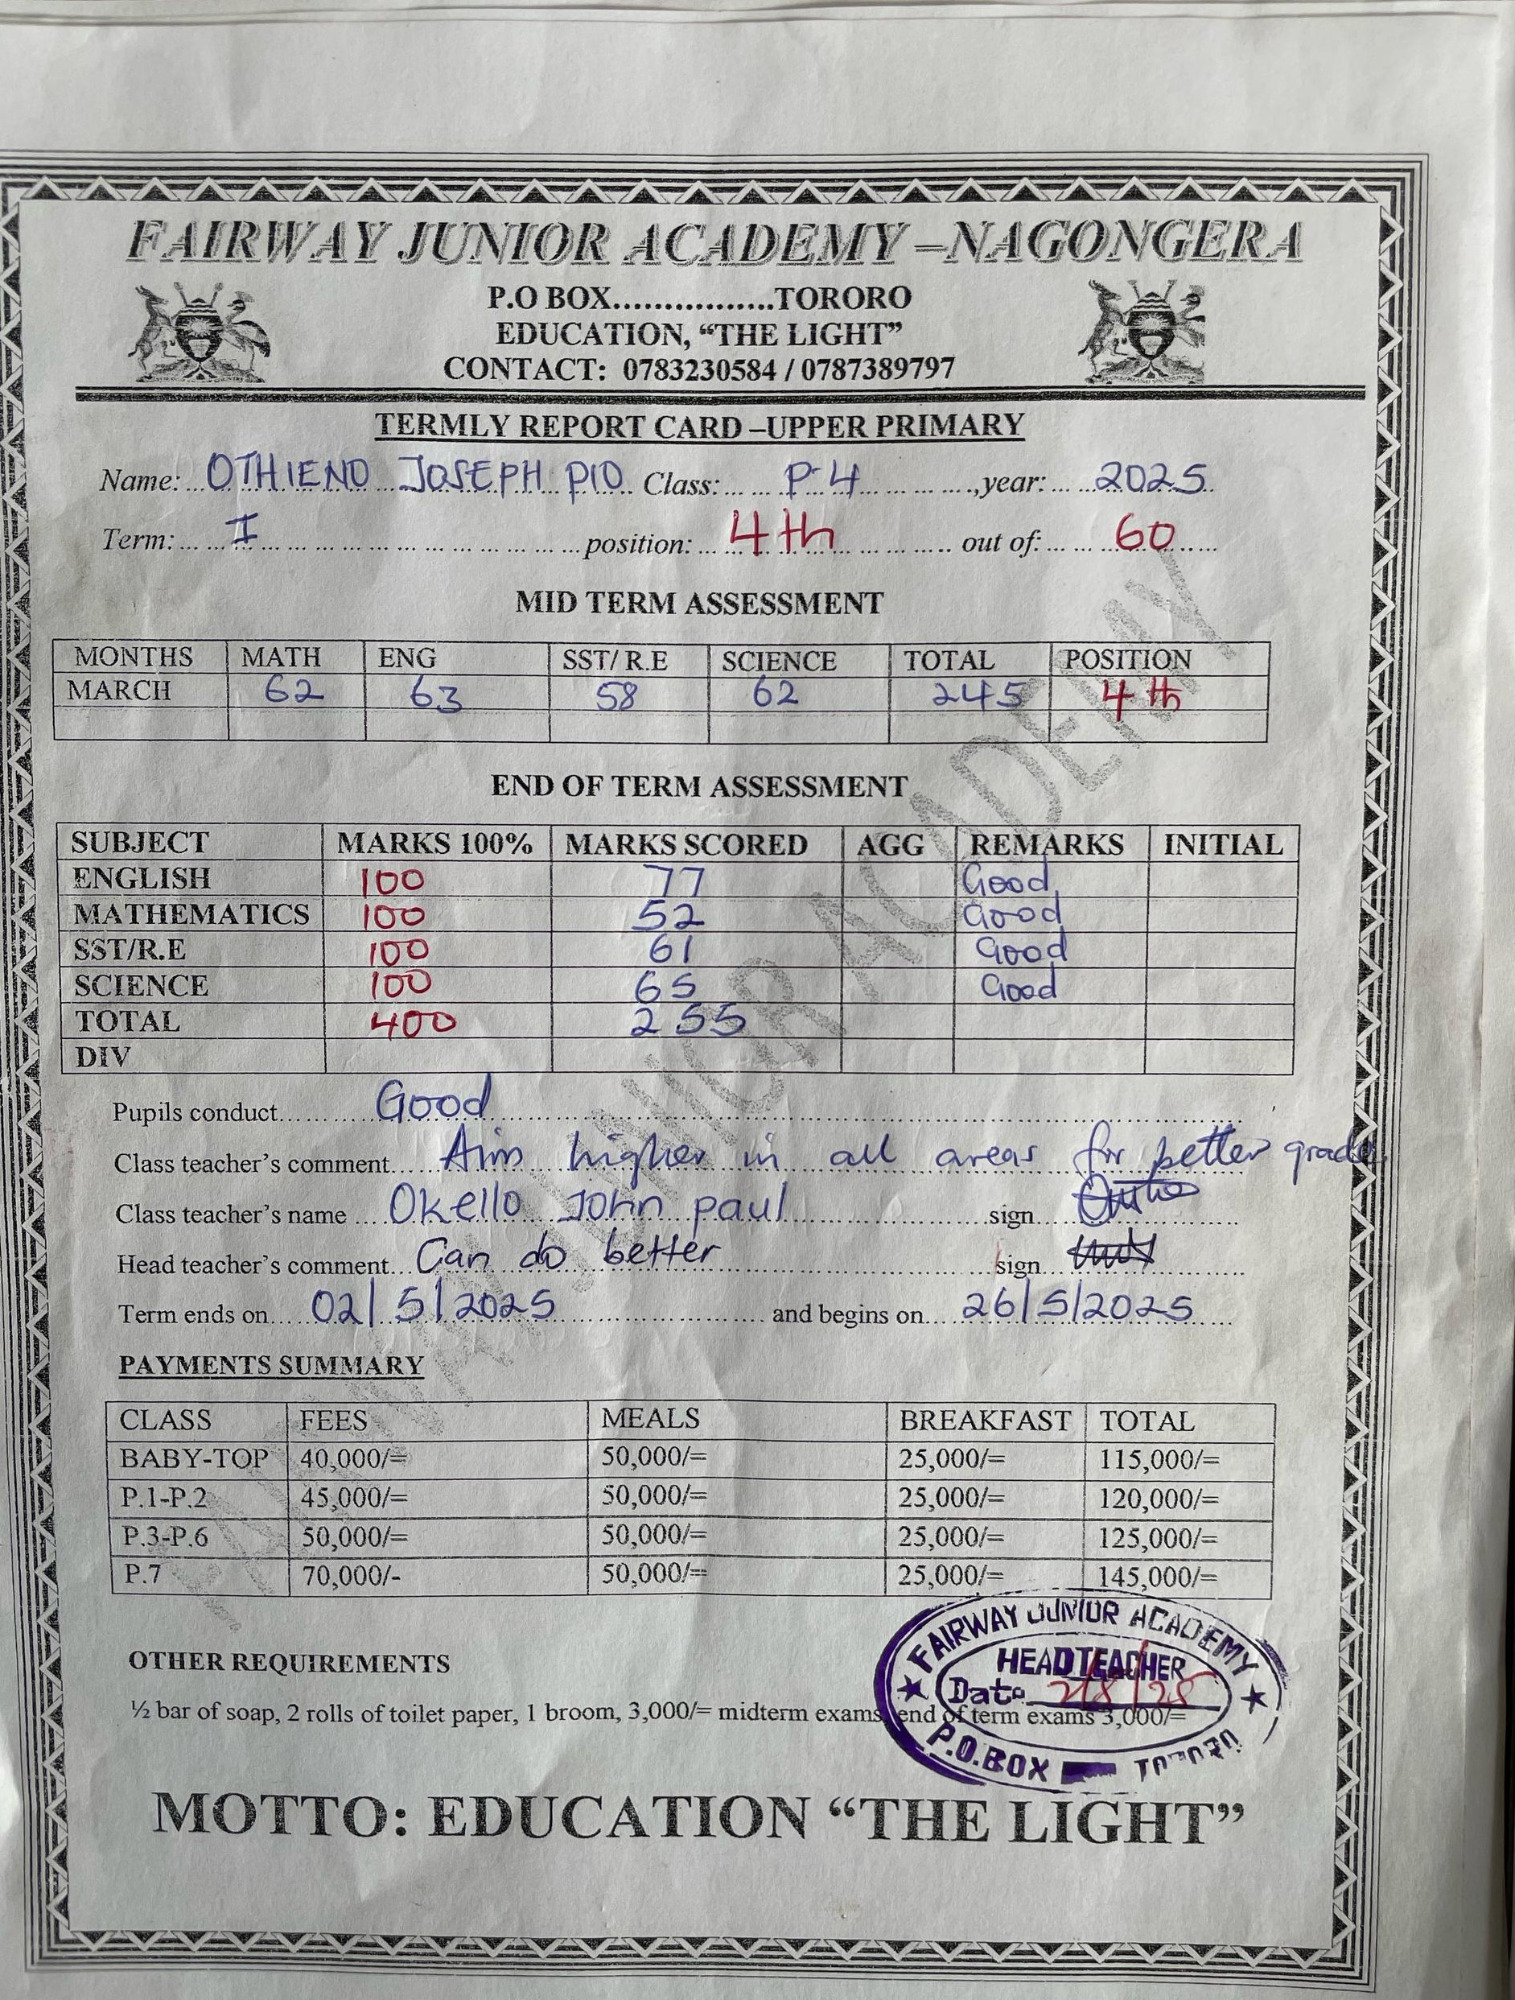 FAIRWAY JUNIOR ACADEMY –NAGONGERA
P.O BOX................TORORO
EDUCATION, “THE LIGHT”
CONTACT: 0783230584 / 0787389797
TERMLY REPORT CARD –UPPER PRIMARY
Name: OTHIENO JOSEPH PIO Class: P.4 ,year: 2025
Term: I position: 4th out of: 60
MID TERM ASSESSMENT
MONTHS MATH ENG SST/ R.E SCIENCE TOTAL POSITION
MARCH 62 63 58 62 245 4th
END OF TERM ASSESSMENT
SUBJECT MARKS 100% MARKS SCORED AGG REMARKS INITIAL
ENGLISH 100 77 Good
MATHEMATICS 100 52 Good
SST/R.E 100 61 Good
SCIENCE 100 65 Good
TOTAL 400 255
DIV
Pupils conduct Good
Class teacher’s comment Aim higher in all areas for better grades
Class teacher’s name Okello John paul sign
Head teacher’s comment Can do better sign
Term ends on 02/5/2025 and begins on 26/5/2025
PAYMENTS SUMMARY
CLASS FEES MEALS BREAKFAST TOTAL
BABY-TOP 40,000/= 50,000/= 25,000/= 115,000/=
P.1-P.2 45,000/= 50,000/= 25,000/= 120,000/=
P.3-P.6 50,000/= 50,000/= 25,000/= 125,000/=
P.7 70,000/- 50,000/= 25,000/= 145,000/=
OTHER REQUIREMENTS
½ bar of soap, 2 rolls of toilet paper, 1 broom, 3,000/= midterm exams, end of term exams 3,000/=
FAIRWAY JUNIOR ACADEMY
HEADTEACHER
Date
P.O.BOX TORORO
MOTTO: EDUCATION “THE LIGHT”
FAIRWAY JUNIOR ACADEMY